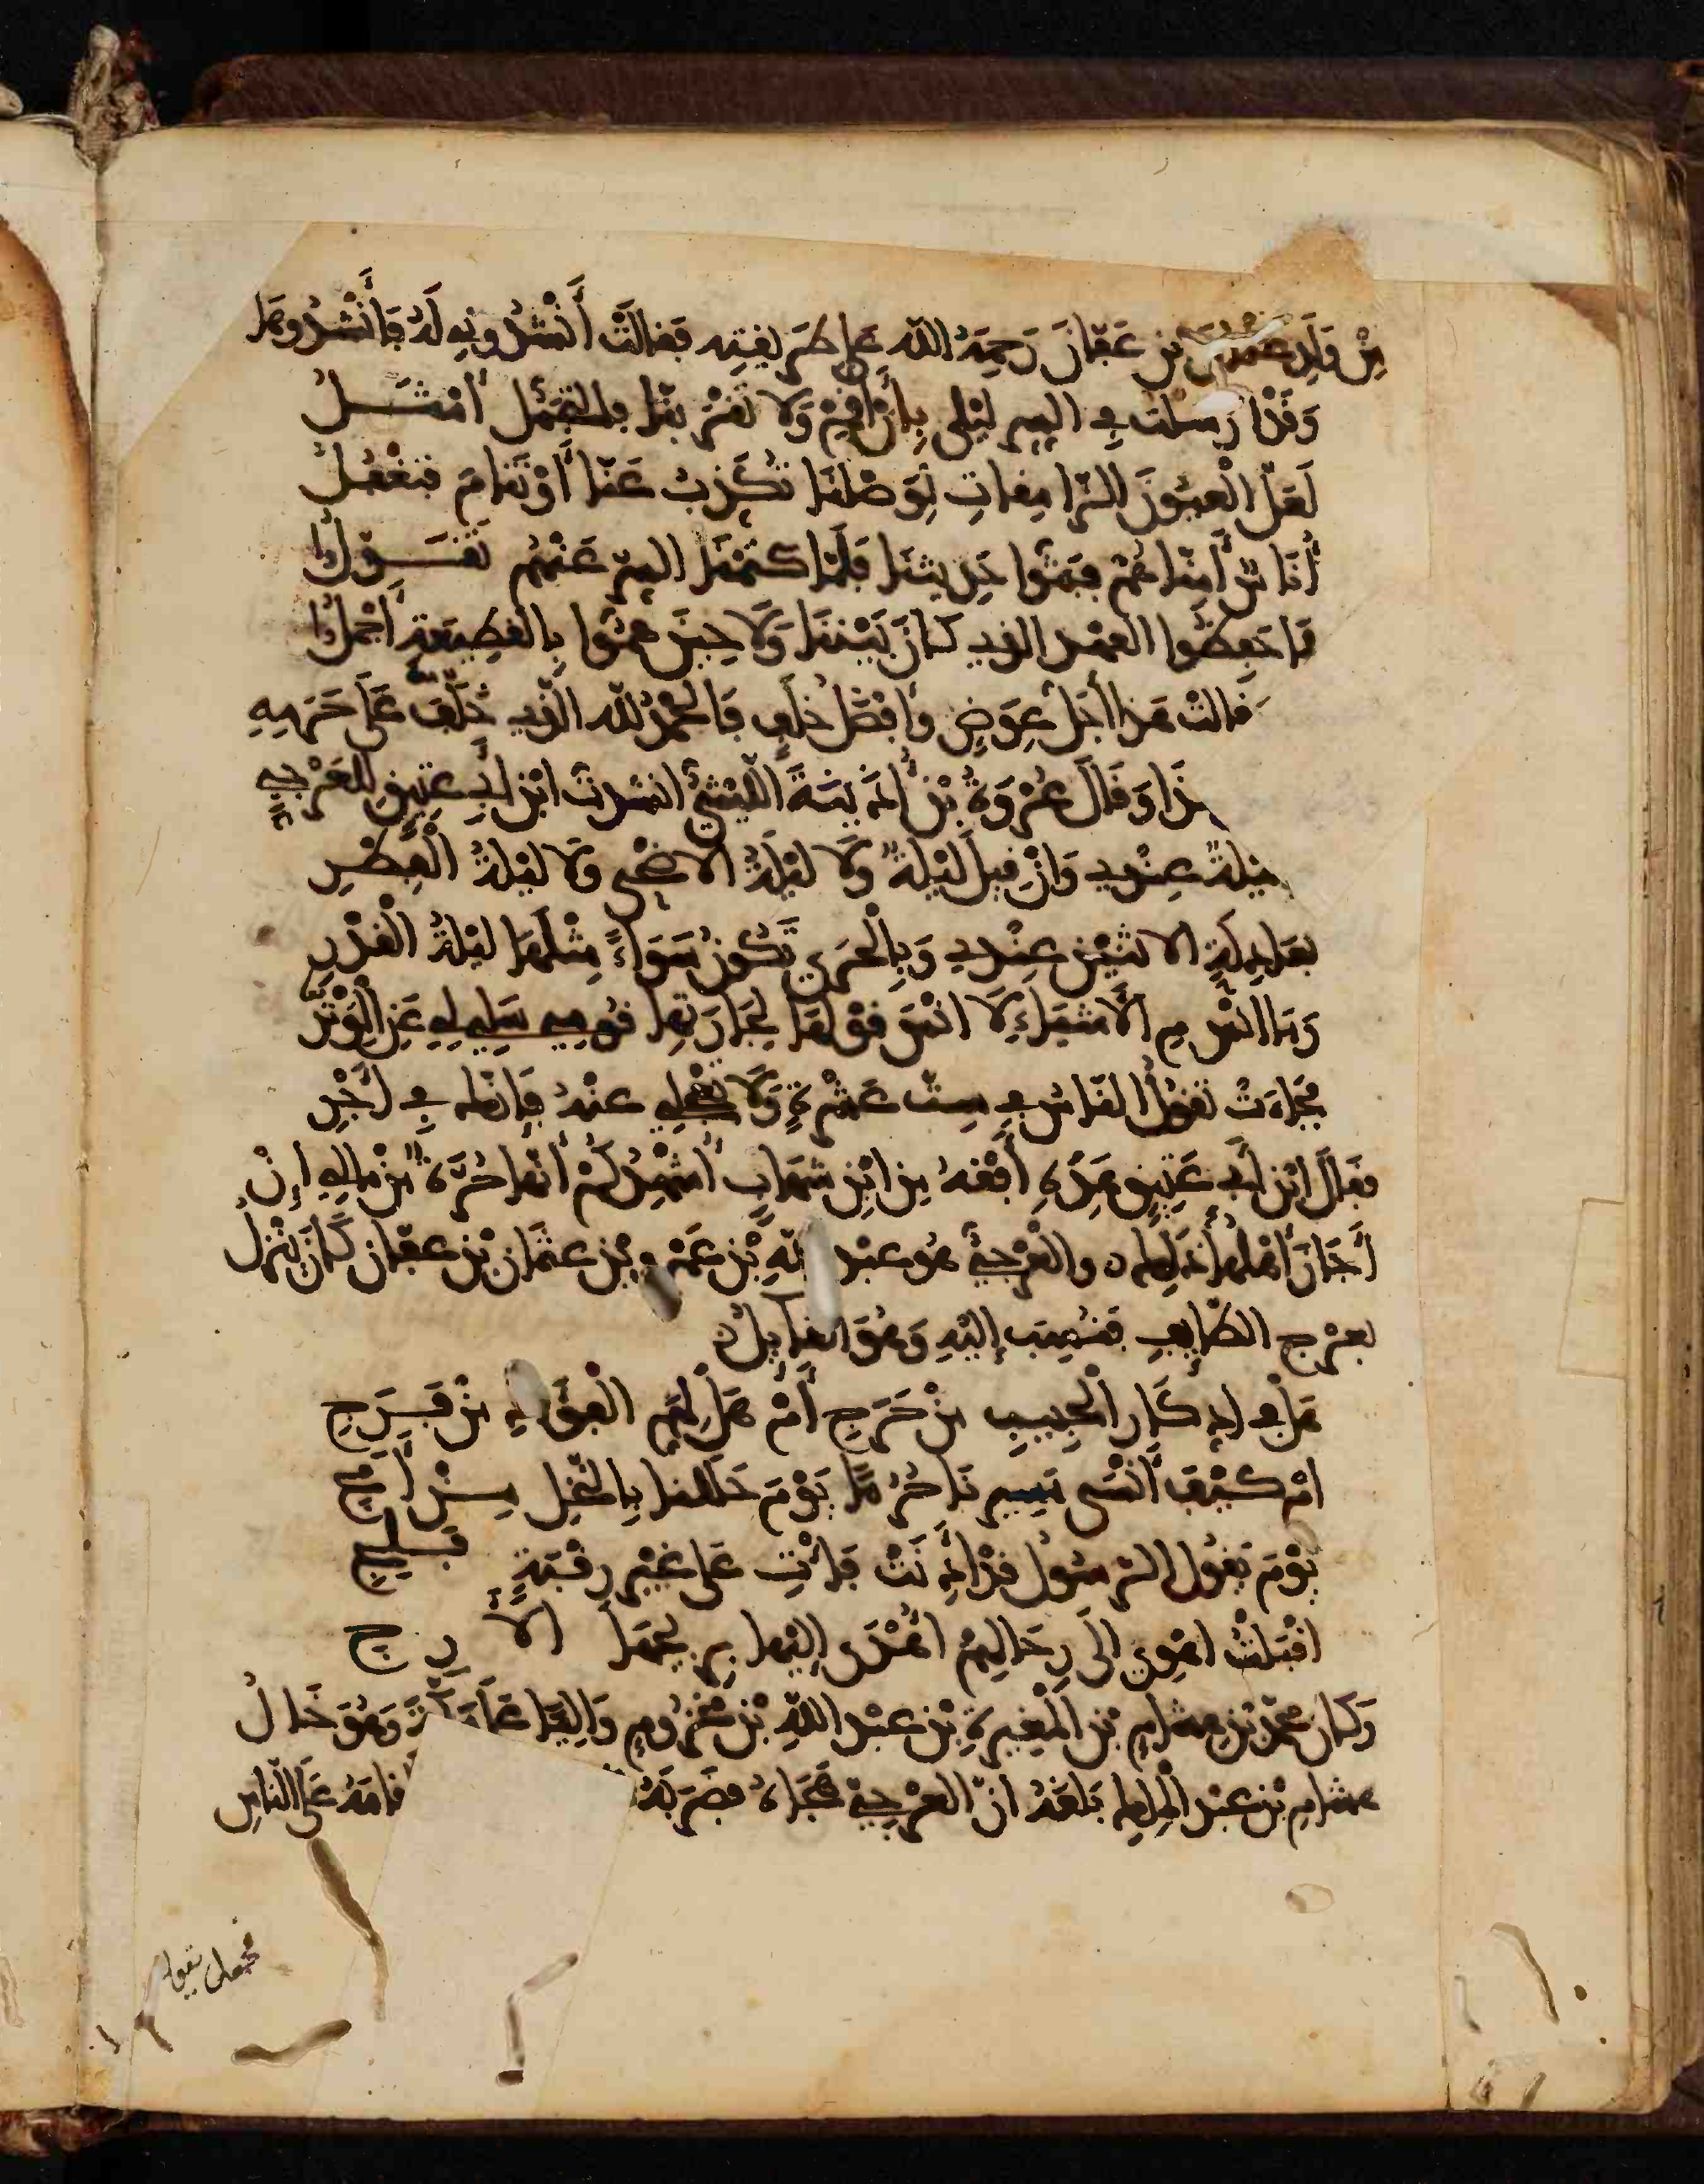 مِنْ وَلَدِ عثمن بن عَفّانَ رَحِمَهُ اللّه على طريقته فقالتْ أَنْشِدُونِيهِ لَهُ فَأَنْشَدُوهَا
وَقَدْ ارسلت في السر ليلى بِأَنْ أَقِمْ وَلَا تقربنّا فالتجمل أمثــل
لَعَلّ الْعيُونَ الرّامقاتِ لِوَصْلنَا تُكَذِّبُ عَنّا أَوْ تَنامَ فتغْفُلُ
أُنَاسٌ أَمِنّاهُمْ فبثّوا حَدِيثنَا فَلَمّا كتمْنَا السرّ عَنْهُم تَقَــوّلُوا
فَما حَفِظُوا العهد الذي كانَ بَيْنَنَا وَلَا حِينَ همّوا بِالْقَطِيعَةِ أجْملُوا
فقالت هذا أجلّ عِوَضٍ وأفْضَلُ خَلَفٍ فَالحمْدُ للّه الّذي خَلَّفَ عَلَى حَرَمِهِ
هذَا وَقَالَ عُرْوَةُ بْنُ أُذَيْنَةَ اللّيْثيُّ انشدت ابْنَ أبي عتِيقٍ للعَرْجِيّ
فما ليْلةٌ عِنْدي وَإنْ قيلَ لَيْلةٌ وَلَا لَيْلَةُ الاضْحى وَلَا لَيْلَةُ الْفِطْرِ
بعَادِلَةِ الاثنَيْنِ عِنْدي وَبِالْحَرَى تَكُونُ سَوَاءً مِثْلَهَا لَيْلَةُ الْقَدْرِ
وَمَا انْسَ مِ الْأَشْيَاءِ لَا انْسَ قوْلهَا لِجَارَتِها قُومِي سَلِي لِي عَنِ الْوِتْرِ
فجَاءَتْ تقولُ النّاسُ في سِتّ عَشْرَةٍ وَلَا تعْجلي عنْهُ فَإنّك في أَجْرِ
فقَالَ ابْنُ أبي عَتِيقٍ هَذِهِ أَفْقهُ مِن ابْنِ شهَابٍ أُشْهِدُكُمْ أنّها حُرّةٌ مِنْ مالي إنْ
أَجَازَ أهْلُها ذَلك ه والعَرْجيّ هُو عبْد اللّهِ بْن عَمْرو بْن عثمَان بْن عفّان كَانَ ينْزِلُ
بعَرْج الطّائِفِ فنُسِبَ إِلَيْهِ وَهُوَ القائِلُ
هَل في ادّكَار الْحَبِيبِ مِنْ حَرَجِ أَمْ هَلْ لِهَمّ الْفؤاد مِنْ فَــرَجِ
امْ كَيْفَ أَنْسَى مَسِيرنَا حُرُمًا يَوْمَ حَلَلْنا بِالنّخْل مِــنْ أَمَجِ
يَوْمَ يَقُول الرّسُول قدْ أَذِنَتْ فَأْتِ عَلى غَيْر رِقْبَةٍ فَــلِجِ
اقْبَلْتُ اهْوِي الى رِحَالِهِمُ اهْدَى إليْها بريحهَا الأَرِجِ
وَكان محمّد بْن هشَامِ بْن الْمُغِيرَةِ بْن عبْد اللّهِ بْن مخزُومٍ وَاليًا عَلَى مَكّةَ وَهُوَ خَالُ
هشامِ بْن عبْد الْملِك بَلَغَهُ انّ العَرْجيّ هَجَاهُ فضَرَبَهُ اقامَهُ عَلَى النّاسِ
فجعل يقول